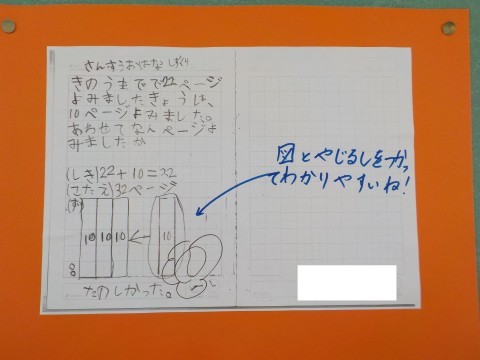 さんすうおはなしづくり
きのうまでで22ページ
よみましたきょうは、
10ページよみました。
あわせてなんページよ
みましたか
(しき)22+10=32
(こたえ)32ページ
(ず)
10 10 10 10
たのしかった。
図とやじるしをつかっ
てわかりやすいね!